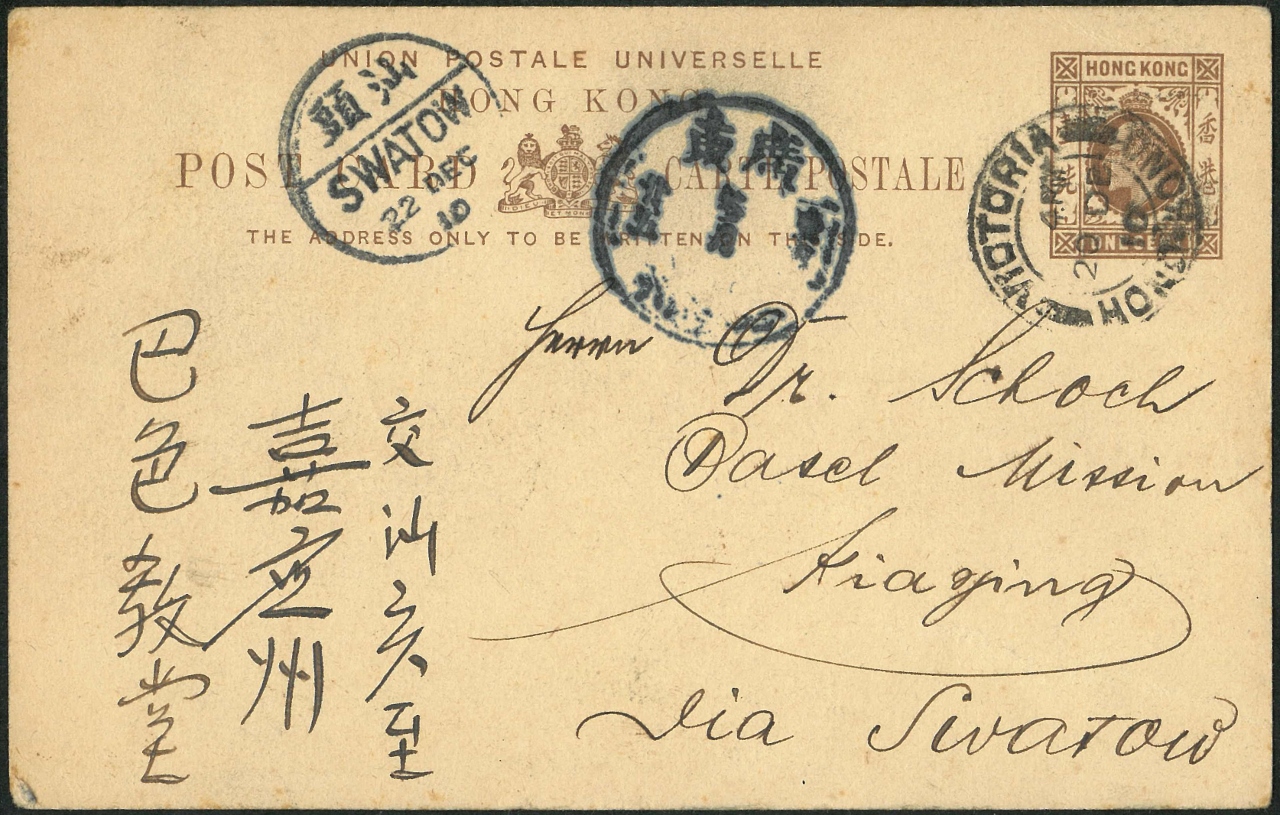 UNION POSTALE UNIVERSELLE
HONG KONG
POST CARD CARTE POSTALE
THE ADDRESS ONLY TO BE WRITTEN ON THIS SIDE.
HONG KONG
香港
ONE CENT
汕頭
SWATOW
22 DEC
10
VICTORIA
HONG KONG
DE
10
Herrn Dr. Schoch
Basel Mission
Kiaying
via Swatow
交汕亥至
嘉应州
巴色教堂